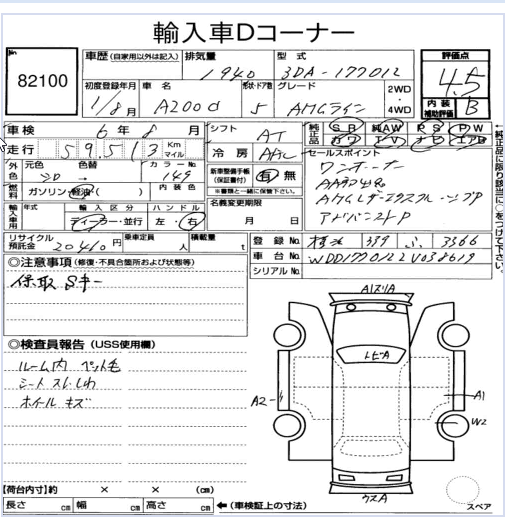 輸入車Dコーナー
No. 82100
車歴 (自家用以外は記入) 排気量 1940 型式 3DA-177012
評価点 4.5
内装補助評価 B
初度登録年月 1/8月 車名 A200d 形状・ドア数 5 グレード AMGライン 2WD・4WD
車検 6年8月 シフト AT
純正品 SR 純AW PS PW
カワ TV ナビ エアB
走行 59,513 Km マイル 冷房 AAC
外色 元色 色替 カラーNo. 149
新車整備手帳(保証書付) 有 無
※書類と一緒に保管下さい。
セールスポイント
ワンオーナー
アドバンスドP
燃料 ガソリン・軽油・( ) 内装色
名義変更期限 月 日
輸入車用 年式 輸入区分 ディーラー・並行 ハンドル 左・右
リサイクル預託金 20410円 乗車定員 人 積載量 t
登録No. 339 ふ 3366
車台No. WDD1770122V038619
シリアルNo.
←純正品に限り該当に○をつけて下さい。
◎注意事項 (修復・不具合箇所および状態等)
保取Sキー
◎検査員報告 (USS使用欄)
ルーム内 ペット毛
シートスレ しわ
ホイールキズ
A1スリA
トビA
A2
A1
W2
ウスA
スペア
【荷台内寸】約 × × (cm)
長さ cm 幅 cm 高さ cm ←(車検証上の寸法)